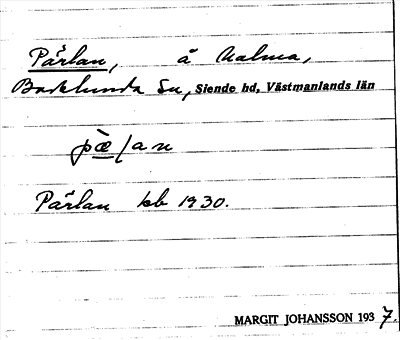 Pärlan, å Malma,
Badelunda Sn, Siende hd, Västmanlands län
pæ̀lan
Pärlan kb 1930.
MARGIT JOHANSSON 1937.